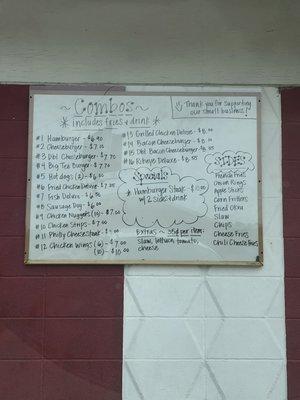 ~ Combos ~
* includes fries & drink *
Thank you for supporting
our small business!
#1 Hamburger - $6.90
#2 Cheeseburger - $7.00
#3 Dbl Cheeseburger - $7.70
#4 Big Tea Burger - $7.00
#5 Hot dogs (2) - $6.00
#6 Fried Chicken Deluxe - $7.25
#7 Fish Deluxe - $6.50
#8 Sausage Dog - $6.00
#9 Chicken Nuggets (10) - $7.00
#10 Chicken Strips - $7.00
#11 Philly Cheesesteak
#12 Chicken Wings (6) - $7.00
(10) - $10.00
#13 Grilled Chicken Deluxe
#14 Bacon Cheeseburger
#15 Dbl Bacon Cheeseburger
#16 Ribeye Deluxe
Specials
* Hamburger Steak -
w/ 2 sides & drink
Extras ~ 35¢ per item:
Slaw, lettuce, tomato,
cheese
SIDES
French Fries
Onion Rings
Apple Sticks
Corn Fritters
Fried Okra
Slaw
Chips
Cheese Fries
Chili Cheese Fries